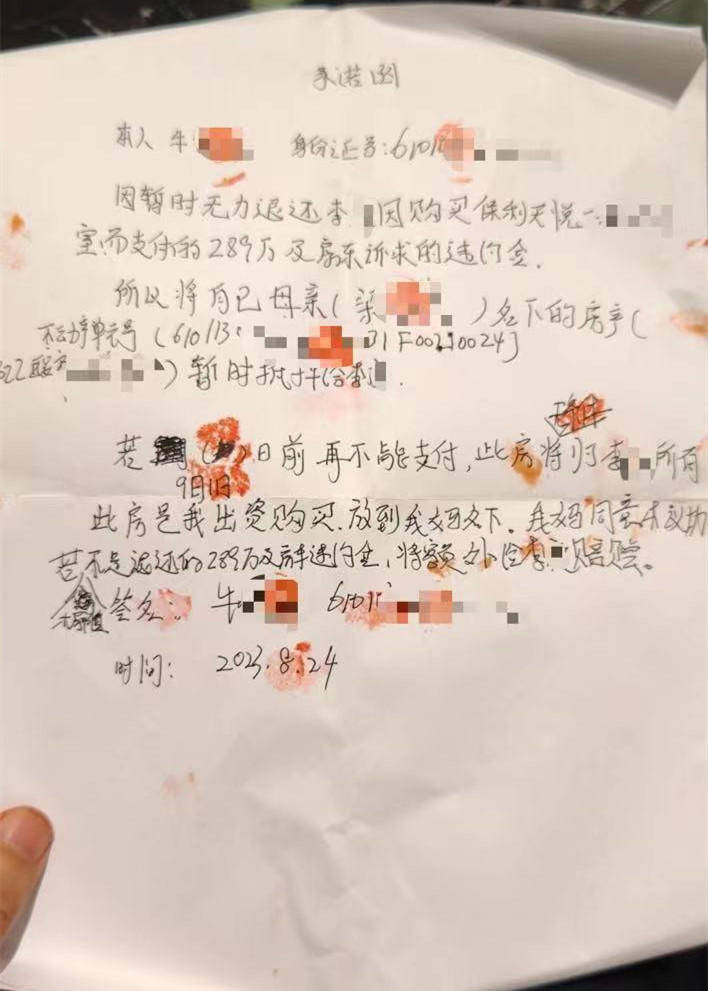 承诺函
本人 牛 身份证号:6101
因暂时无力退还李 因购买保利天悦一
室,而支付的289万及房东诉求的违约金.
所以将自己母亲( )名下的房产(
不动产单元号(610113 F00210024)
)暂时抵押给李 .
若 日前再不能支付,此房将归李 所有
9月1日
此房是我出资购买.放到我妈名下.我妈同意
若不足退还的289万及房东违约金,将额外给李 赔赏。
签名: 牛 6101
时间: 2023.8.24